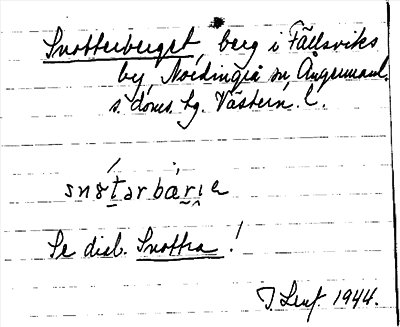 Snotterberget, berg i Fällsviks
by, Nordingrå sn, Ångermanl.
s. doms. lg. Västern. l.
snøtərbarɩe
Se dial. Snottra!
J. Lenf. 1944.